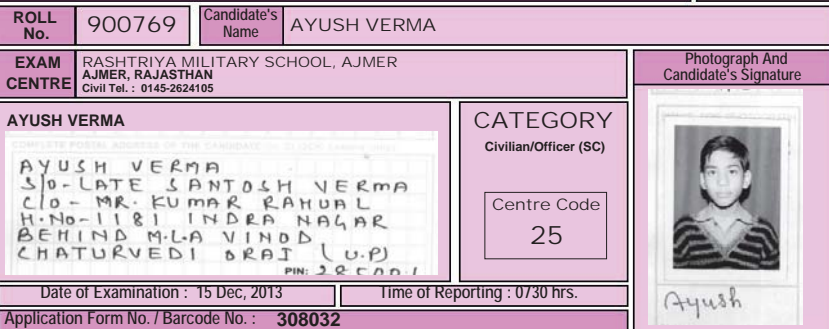 ROLL No. 900769 Candidate's Name AYUSH VERMA
EXAM CENTRE
RASHTRIYA MILITARY SCHOOL, AJMER
AJMER, RAJASTHAN
Civil Tel. : 0145-2624105
Photograph And
Candidate's Signature
AYUSH VERMA
AYUSH VERMA
S/O-LATE SANTOSH VERMA
C/O - MR. KUMAR RAHUAL
H.No-1181 INDRA NAGAR
BEHIND M.L.A VINOD
CHATURVEDI ORAI (U.P)
PIN:
CATEGORY
Civilian/Officer (SC)
Centre Code
25
Ayush
Date of Examination : 15 Dec, 2013 Time of Reporting : 0730 hrs.
Application Form No. / Barcode No. : 308032